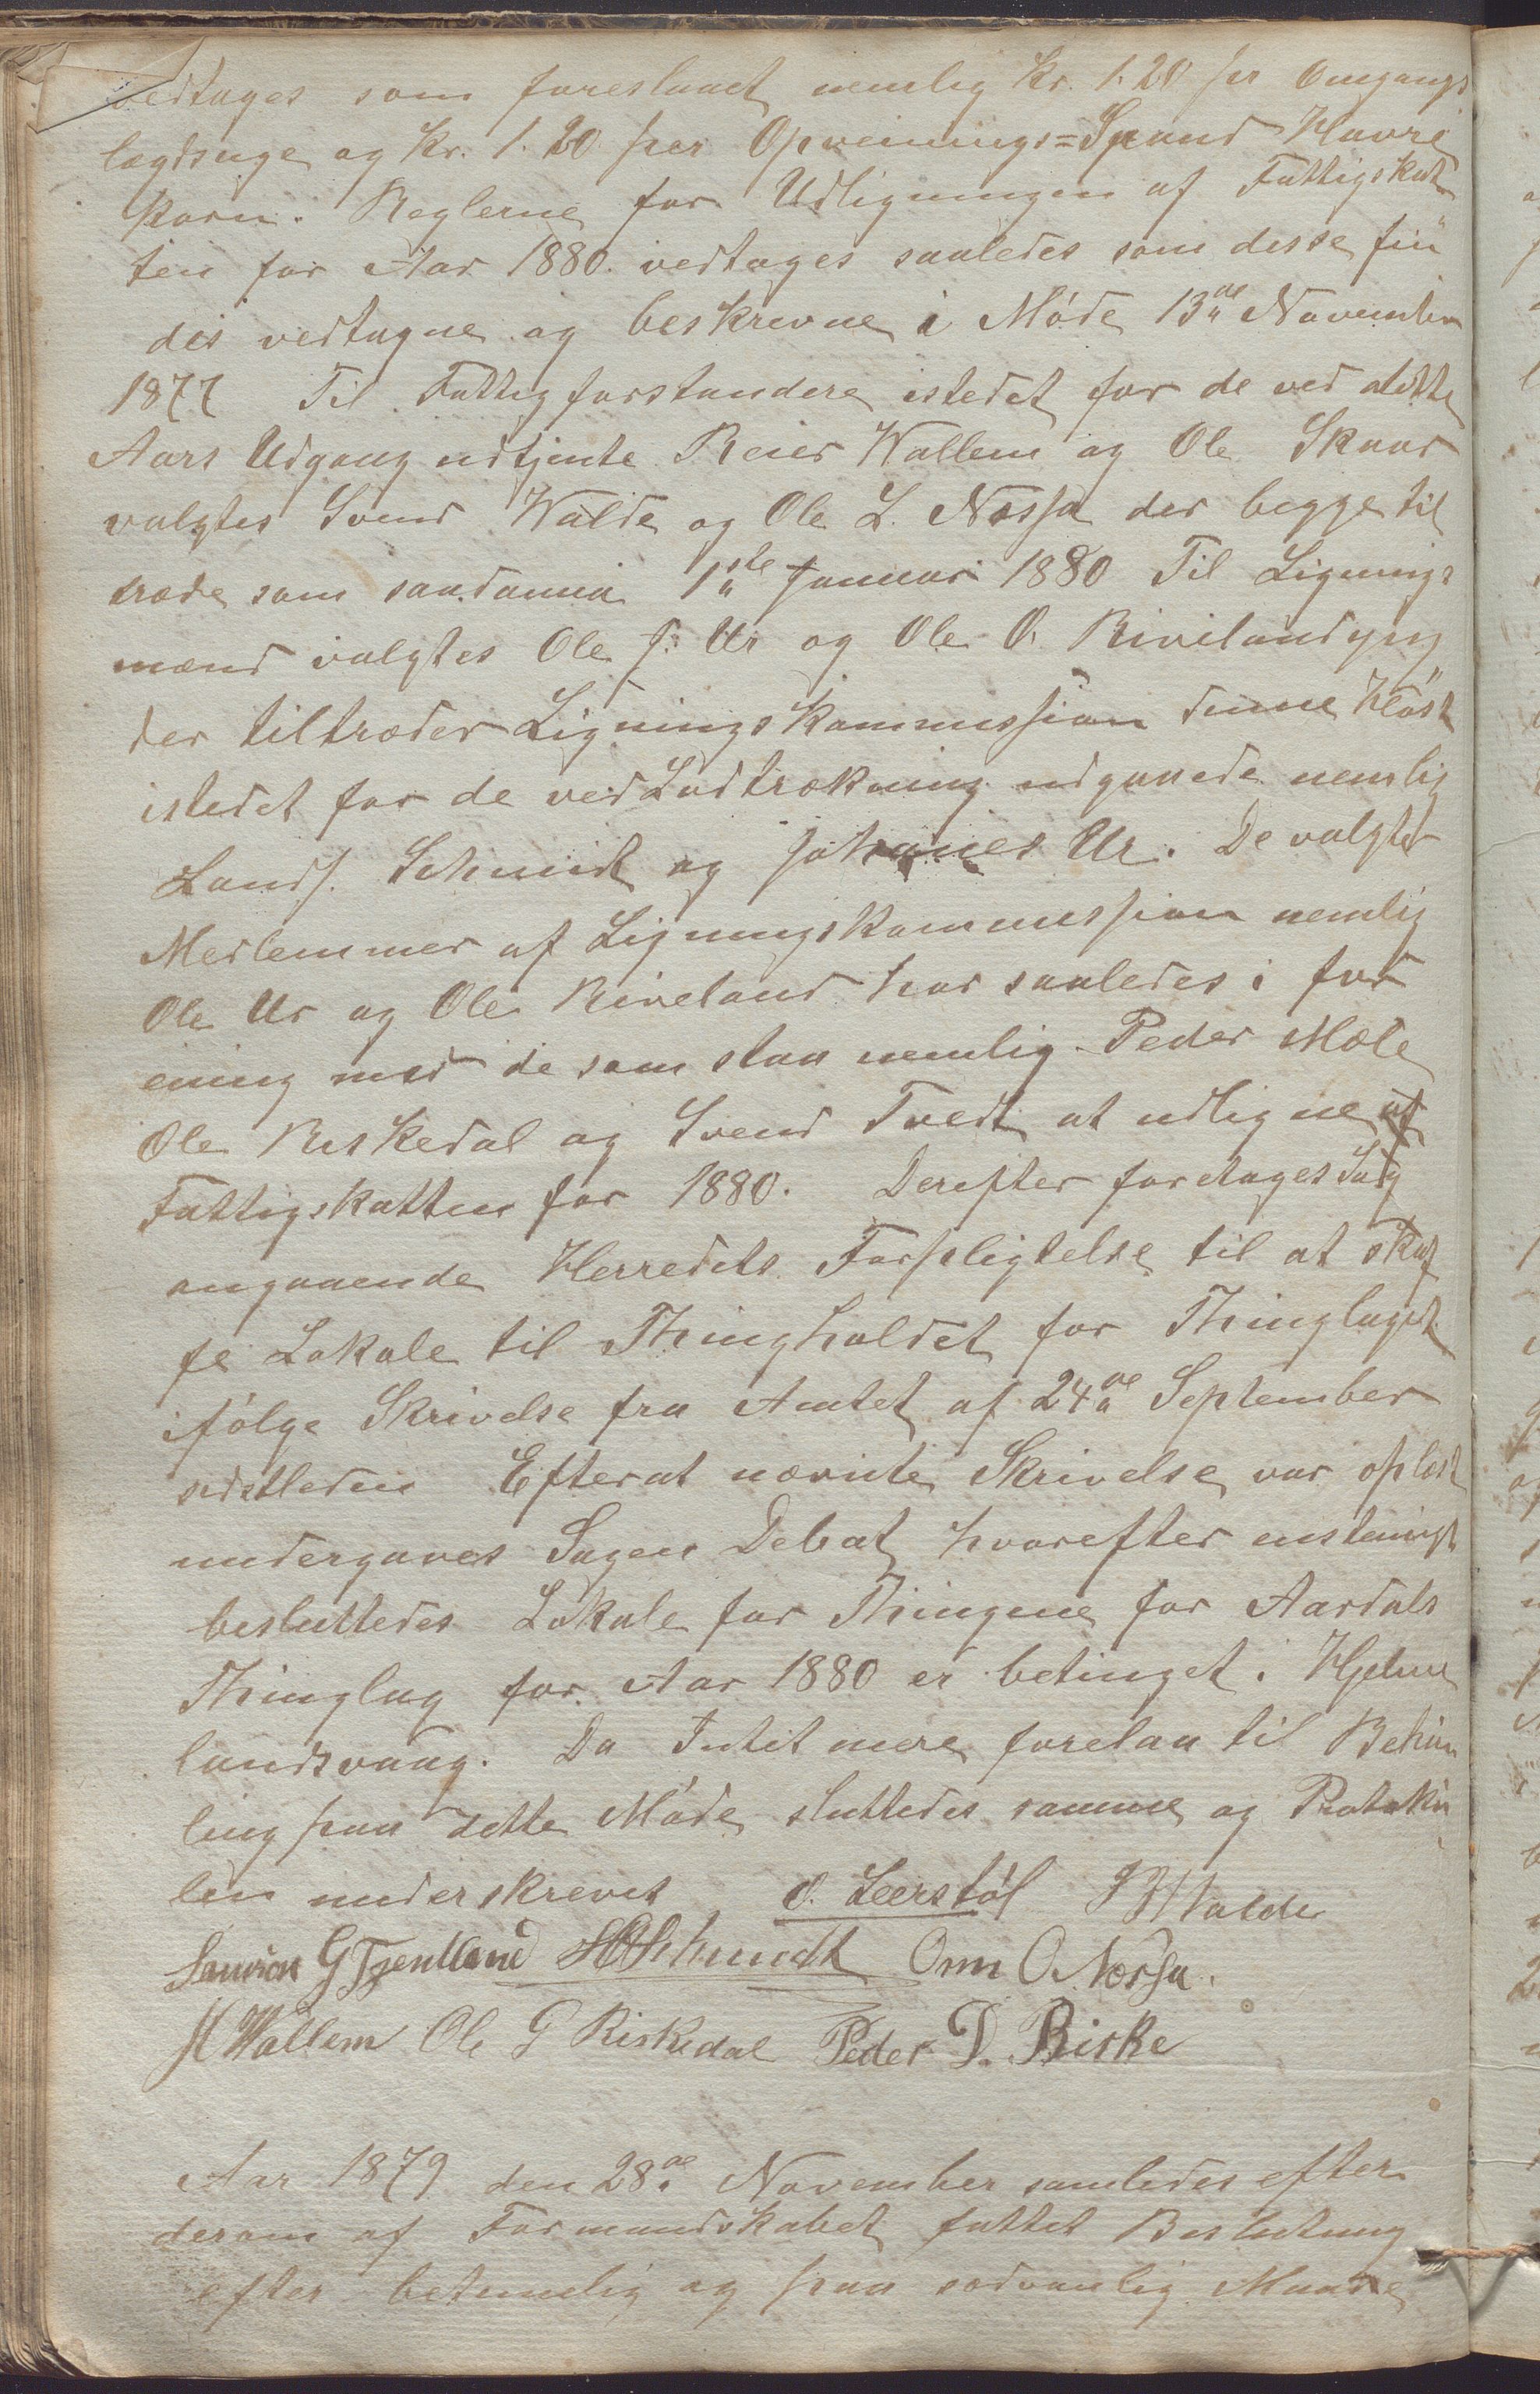 vedtages som foreslaaet nemlig Kr. 1.20 per Omgangs
lægdsuge og Kr. 1.20 per Opveinings=Spand Havre
korn. Reglerne for Udligningen af Fattigskat
ten for Aar 1880 vedtages saaledes som desse fin
des vedtagne og beskrevne i Møde 13de November
1877 Til Fattigforstandere istedet for de ved dette
Aars Udgang udtjente Reier Wallem og Ole Skaar
valgtes Svend Walde og Ole L. Nessa der begge til
træde som saadanna 1ste Januar 1880 Til Lignings
mænd valgtes Ole J. Ur og Ole O. Riviland
der tiltræder Ligningskommissjion denne Høst
istedet for de ved Lodtrækning udgaaede nemlig
Lands. Schmidt og Johanes Ur. De valgte
Medlemmer af Ligningskommissjion nemlig
Ole Ur og Ole Riveland har saaledes i for
ening med de som staa nemlig Peder Mæle
Ole Riskedal og Svend Tvedt at udligne
Fattigskatten for 1880. Derefter foretages Sag
angaaende Herredets Forpligtelse til at skaf
fe Lokale til Thingholdet for Thinglaget
ifølge Skrivelse fra Amtet af 24de September
sidstleden Efterat nævnte Skrivelse var oplæst
undergaves Sagen Debat hvorefter enstemigt
besluttedes Lokale for Thingene for Aardals
Thinglag for Aar 1880 er betinget i Hjelme
landsvaag. Da Intet mere forelaa til Behan
ling paa dette Møde sluttedes samme og Protoko
len underskrevet O. Leerstøl Walde
Lauritz G Tjentland Schmidt Onn O. Nessa.
Wallem Ole G Riskedal Peder D. Riske
Aar 1879 den 28de November samledes efter
derom af Formandskabet fattet Beslutning
efter betimelig og paa sædvanlig Maade